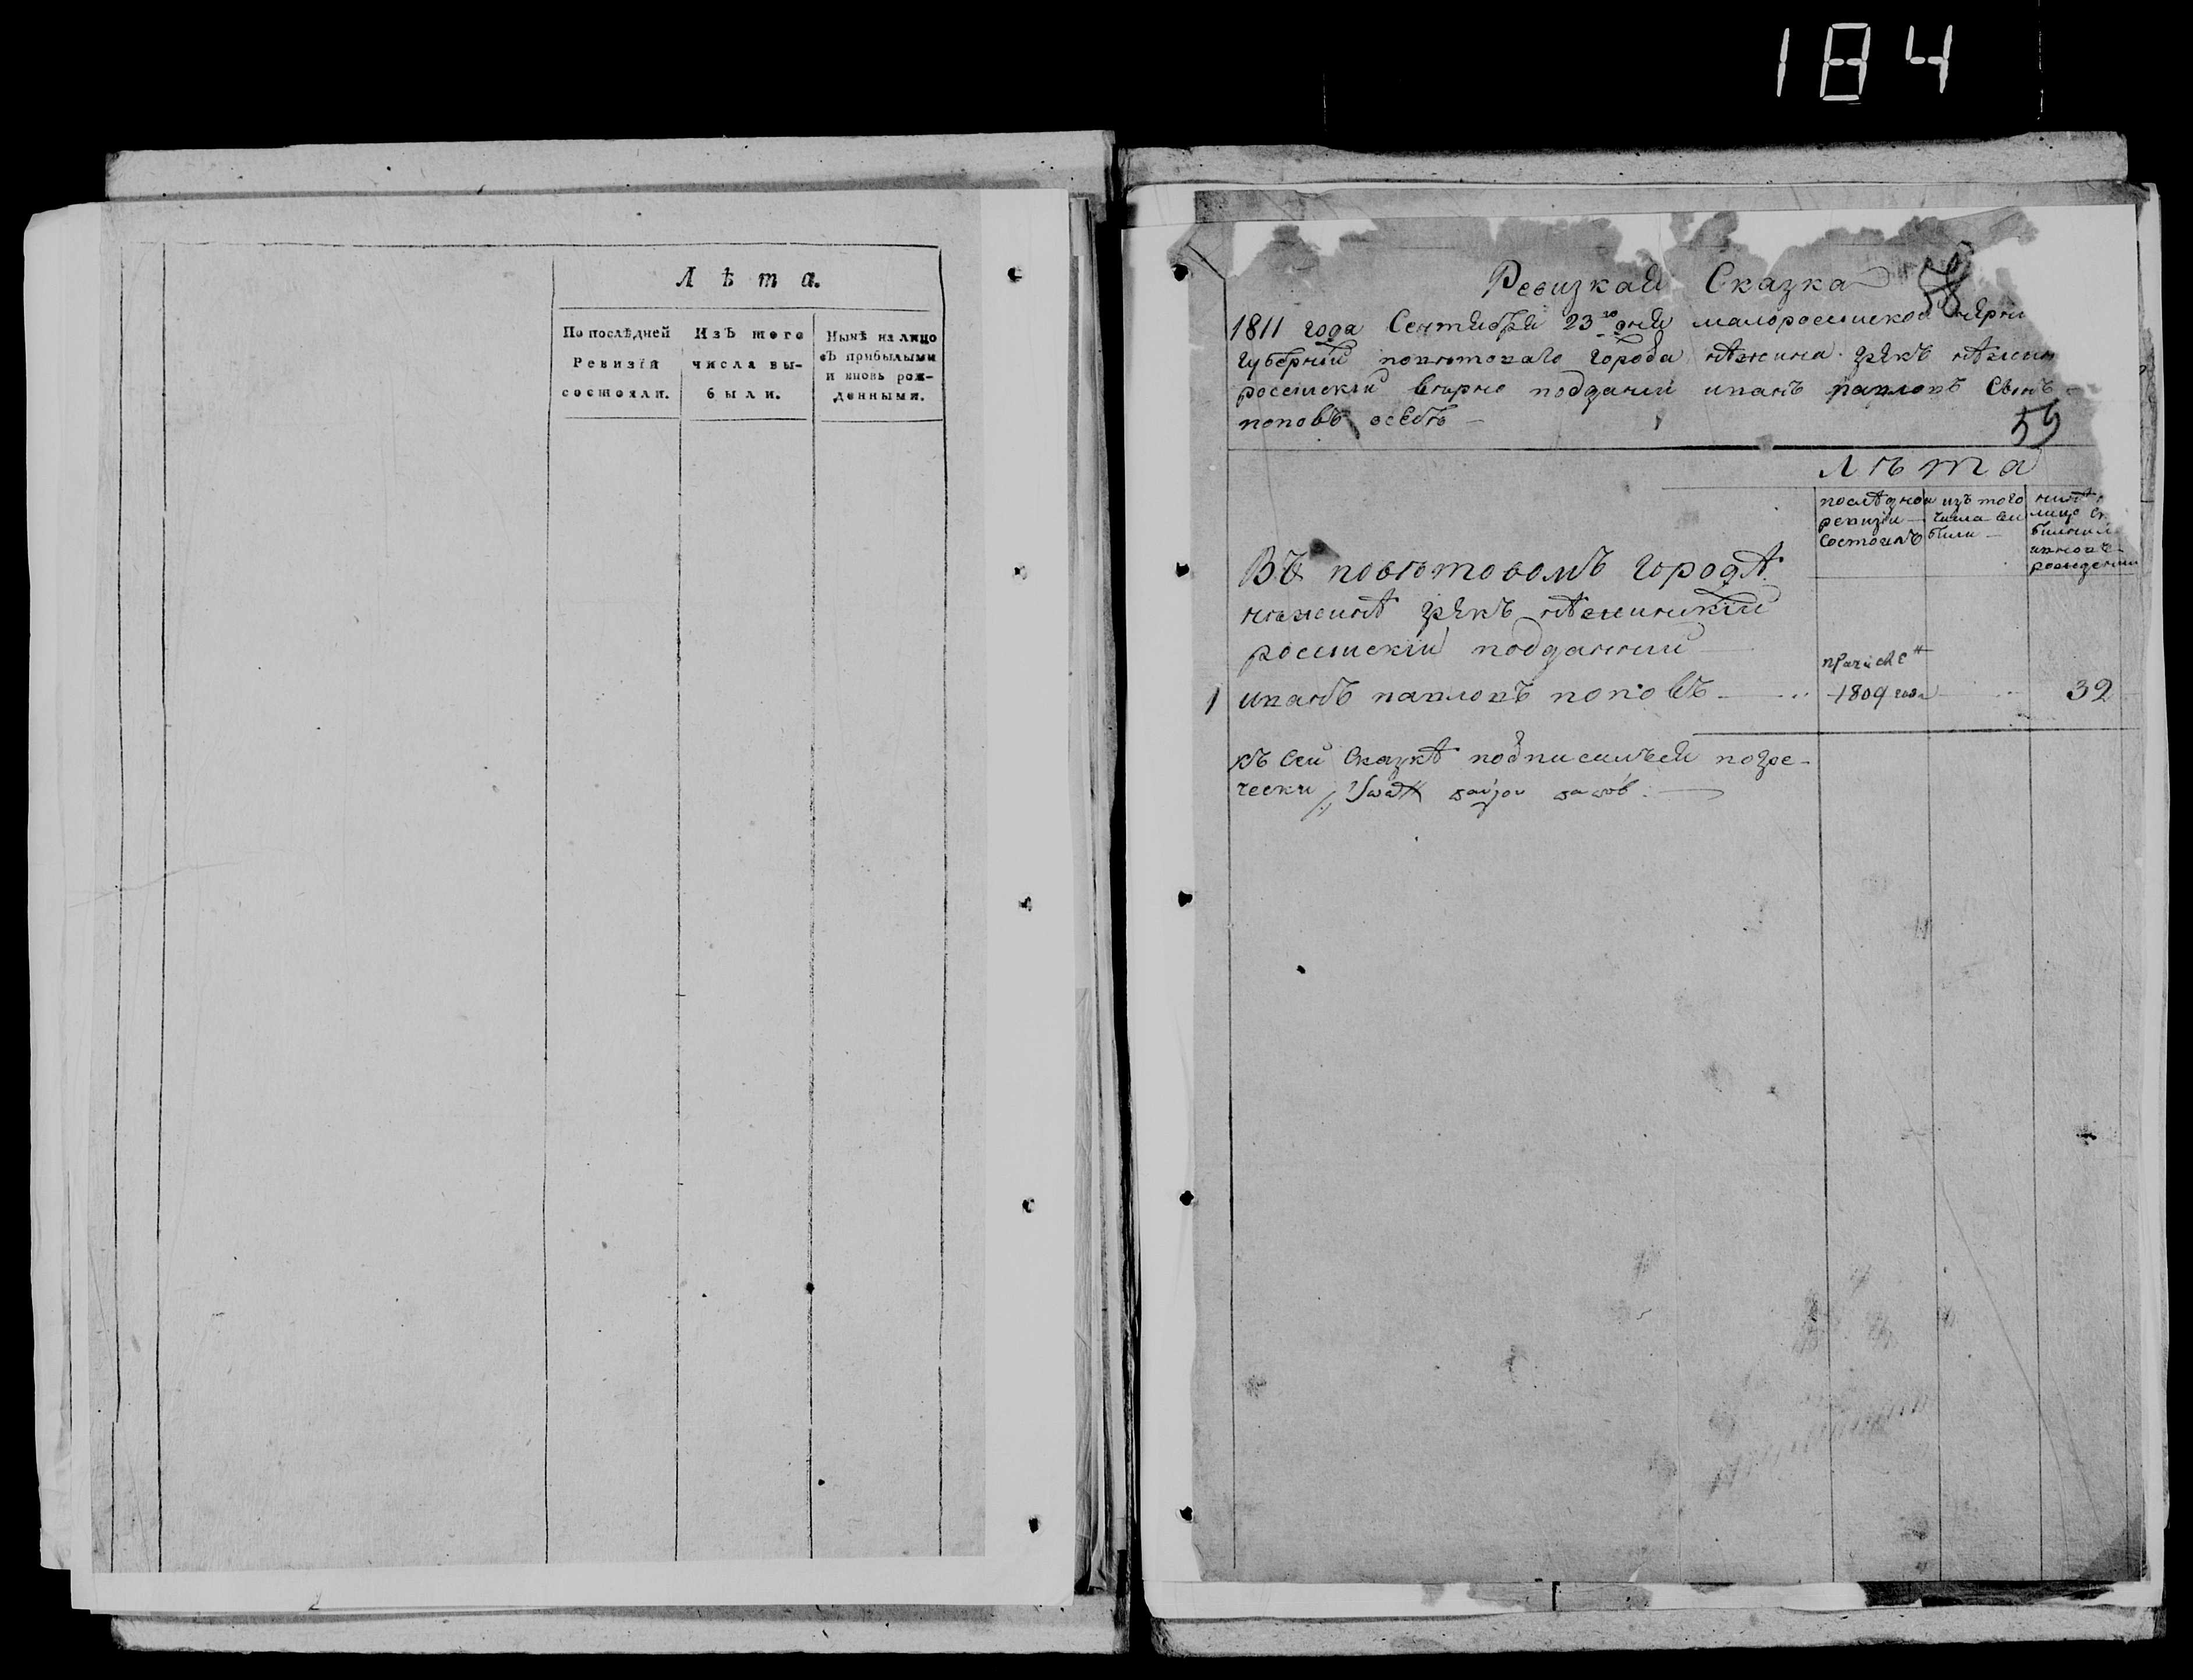 184
Лѣта.
По послѣдней Ревизїи состояли.
ИзЪ того числа вы-были.
Нынѣ на лицо сЪ прибылыми и вновь рож-денными.
Ревизкая Сказка
58
1811 года Сентября 23го дня малоросиской черни
губернии повѣтоваго города нѣжина грекъ нѣжин
росиискии вѣрно поддании иванъ павловъ Сынъ
поповъ осебѣ
59
лѣта
послѣднои ревизии Состоялъ
изъ того числа вибили
лицо
В повѣтовомъ городѣ
нѣжинѣ грекъ нѣжинскии
росиискии поддании
1 иванъ павловъ поповъ 1809 года 32
къ Сеи Сказкѣ подписалъся погре-
чески